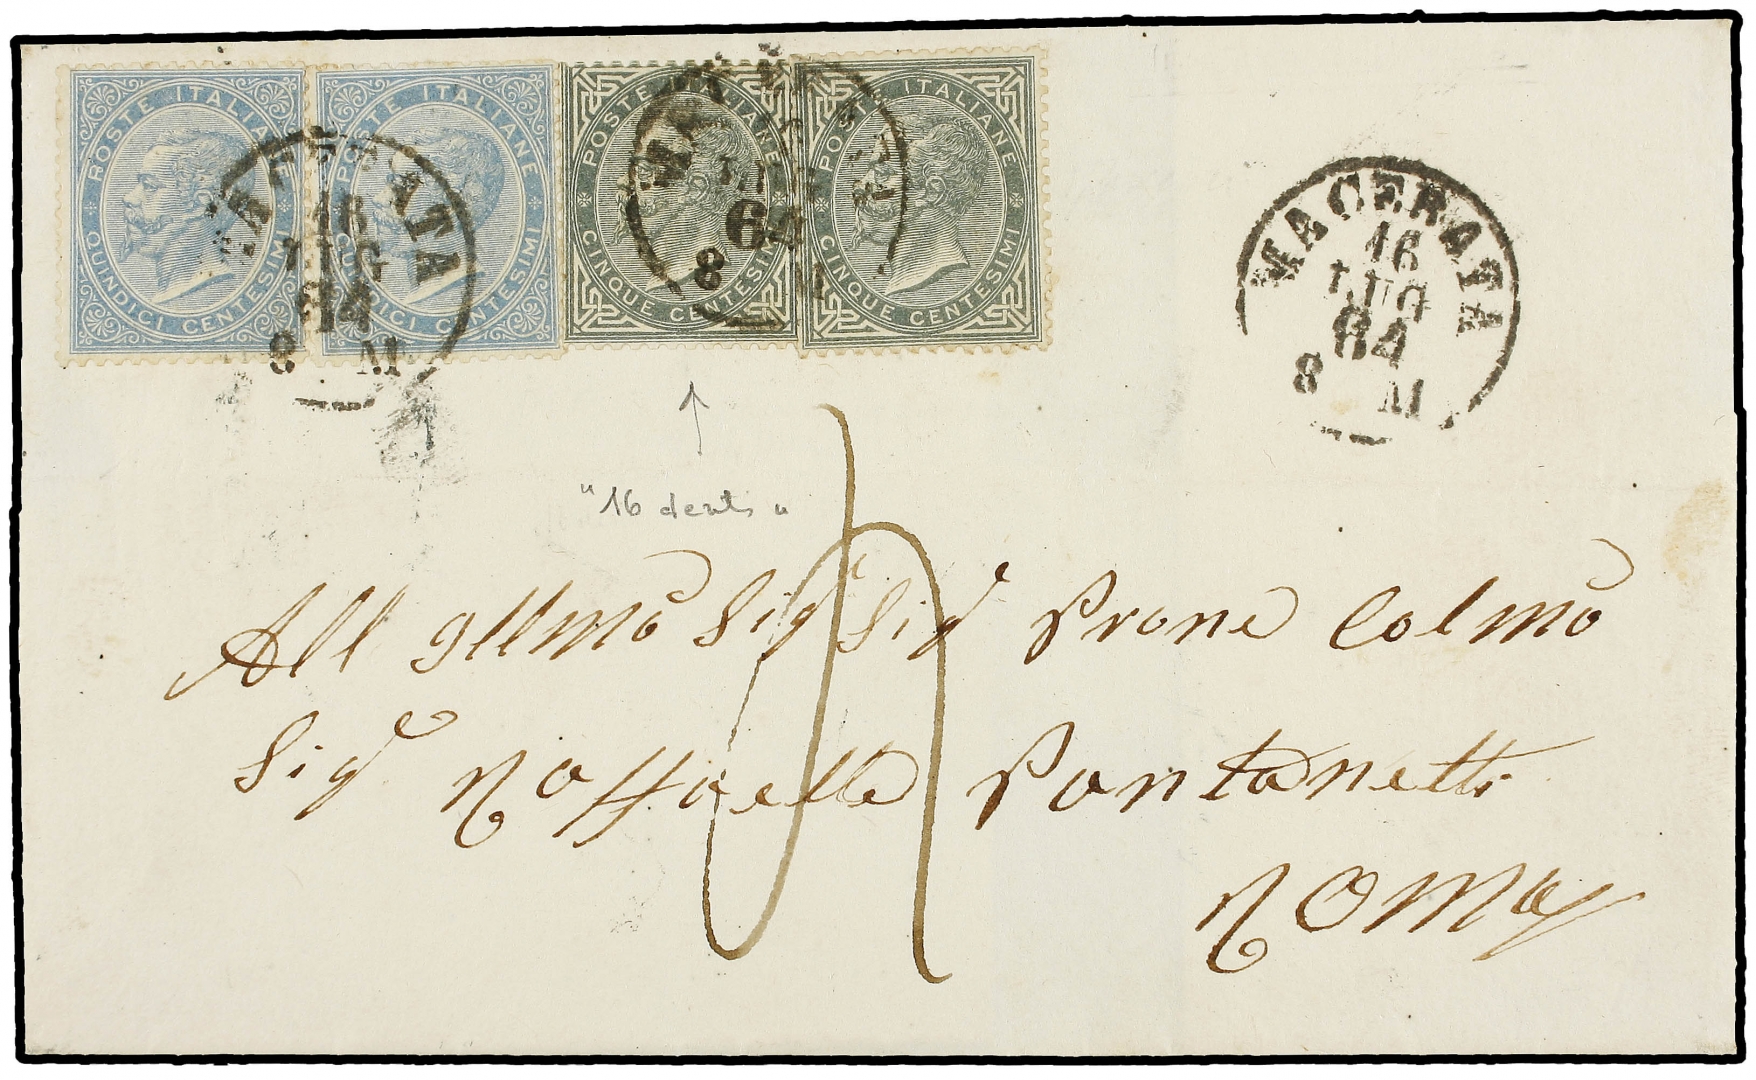 POSTE ITALIANE
QUINDICI CENTESIMI
POSTE ITALIANE
QUINDICI CENTESIMI
POSTE ITALIANE
CINQUE CENTESIMI
POSTE ITALIANE
CINQUE CENTESIMI
MACERATA
16
LUG
64
8 M
MACERATA
LUG
64
8 M
MACERATA
16
LUG
64
8 M
"16 dents"
All Illmo Sigr Sigr Prone Colmo
Sigr Raffaelle Pantanetti
Roma